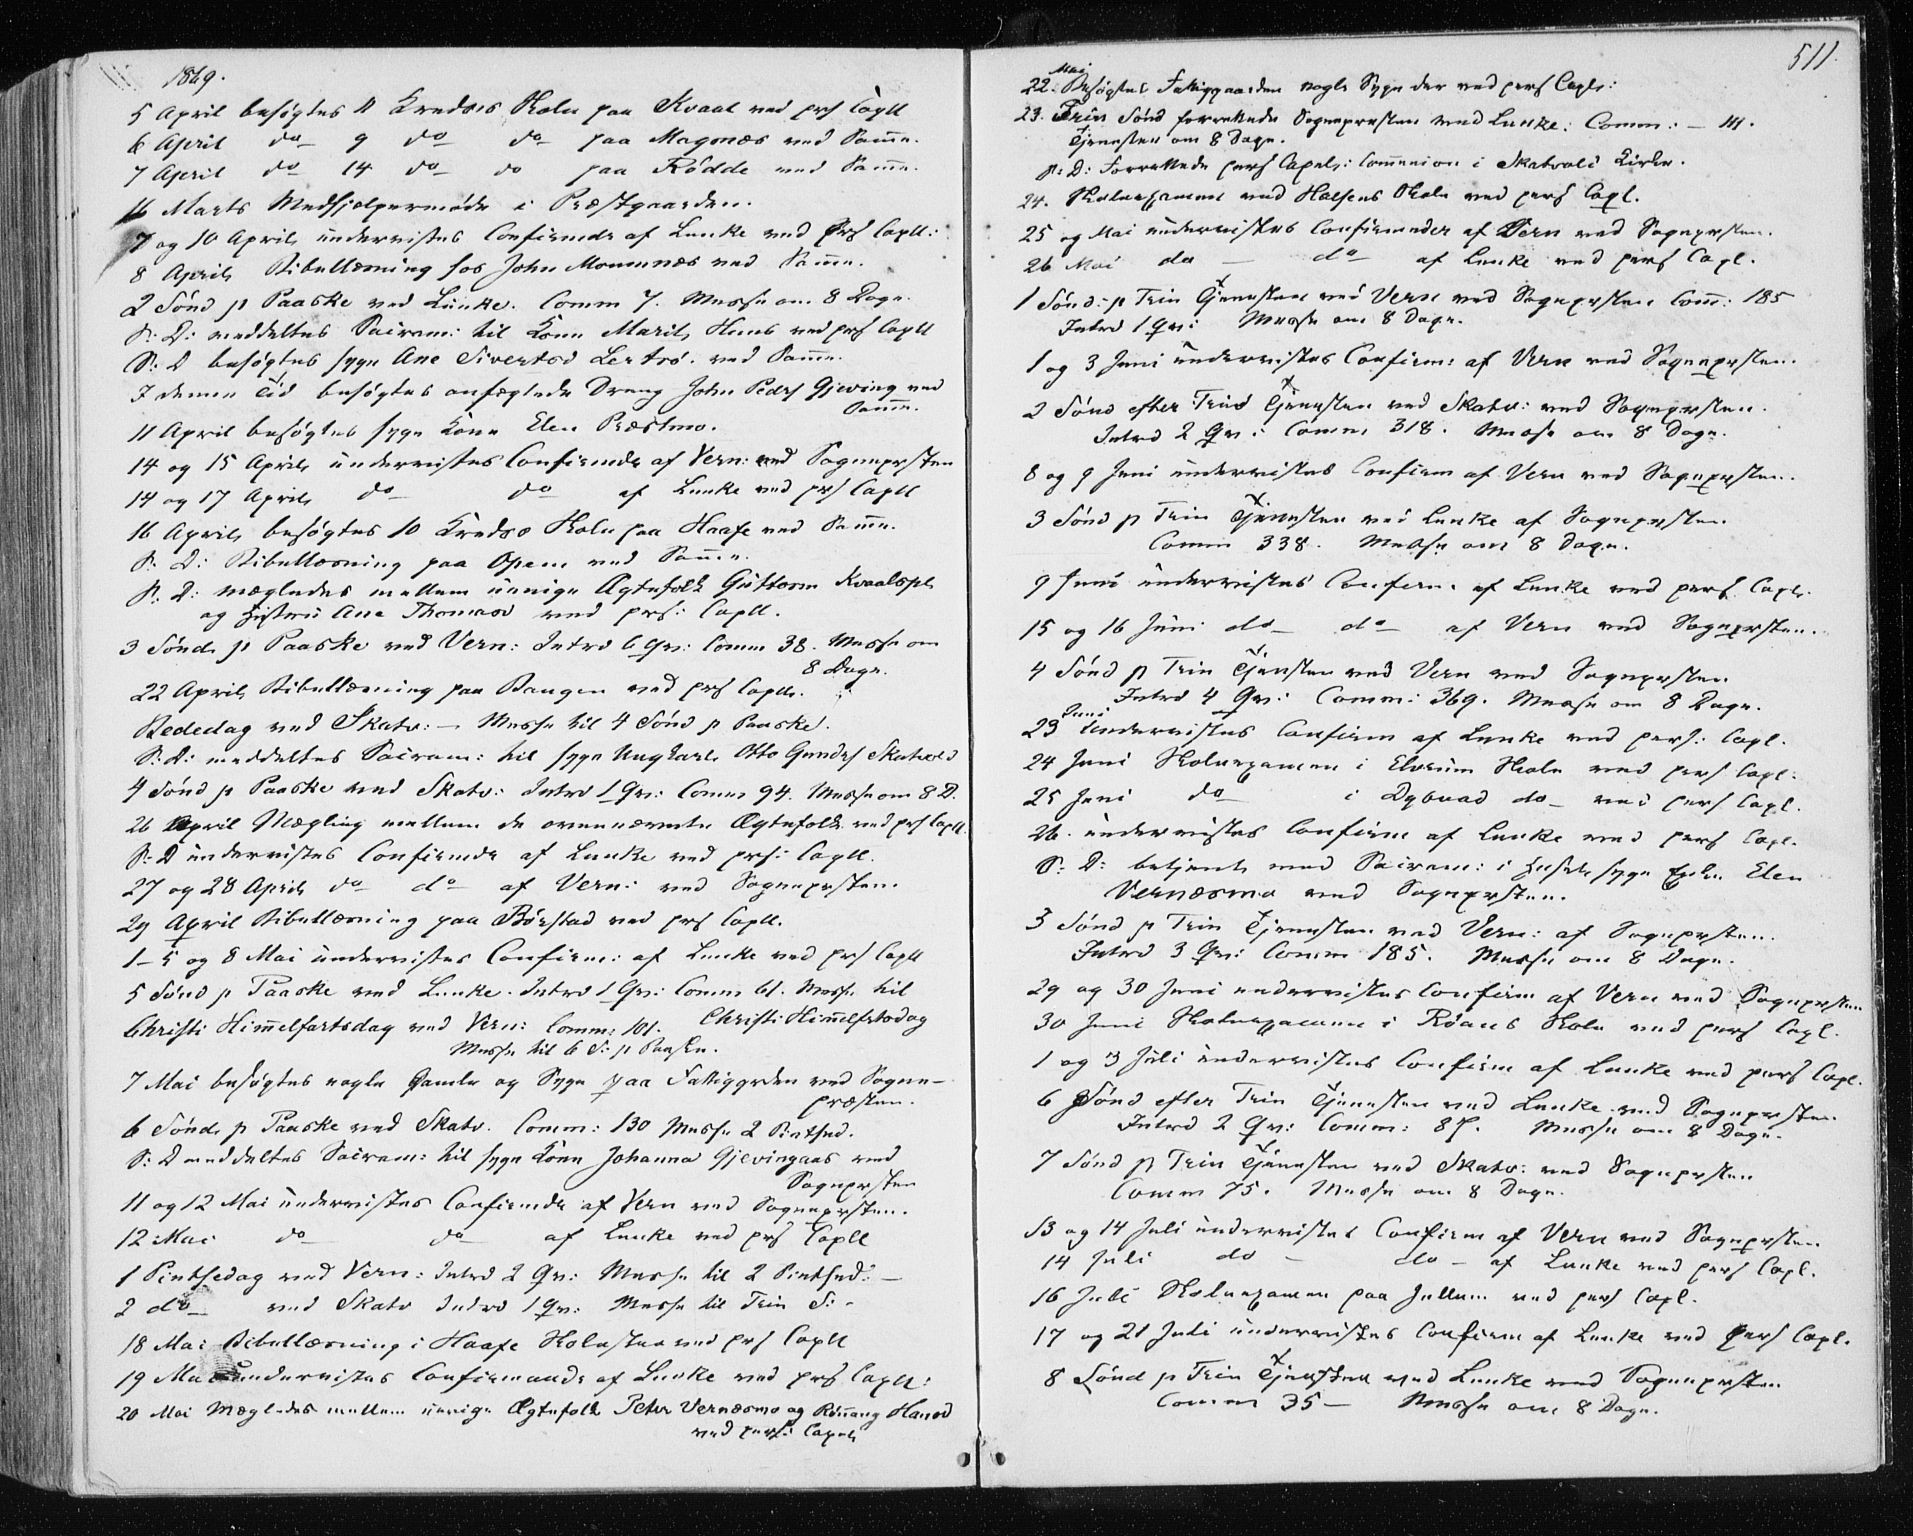 1869.
5 April besøgtes 11 Kredses Skole paa Kvaal ved prs Capll
6 April do 9 do do paa Magnæs ved Samme.
7 April do 14 do do paa Rødde ved Samme.
16 Marts Medhjelpermøde i Præstgaarden.
7 og 10 April undervistes Confirmde af Lunke ved prs Capll:
8 April Bibellæsning hos John Moumnæs ved Samme.
2 Sønd p Paaske ved Lunke. Comm 7. Messe om 8 Dage.
S: D: meddeltes Sacram: til Kone Marit Huus ved prs Capll
S: D besøgtes syge Ane Sivertsd Lertrø. ved Samme.
I denne Tid besøgtes Dreng John Peders Gjeving ved
Samme.
11 April besøgtes syge Kone Elen Præstmo.
14 og 15 April undervistes Confirmde af Vern: ved Sognepræsten
14 og 17 April do do af Lunke ved prs Capll
16 April besøgtes 10 Kredses Skole paa Haafe ved Samme.
S: D: Bibellæsning paa Opem ved Samme.
S: D: mægledes mellem uenige Ægtefolk Guttorm Kvaalspl
og Hustru Ane Thomasd ved prs: Capll.
3 Sønd p Paaske ved Vern: Introd 6 Qv: Comm 38. Messe om
8 Dage.
22 April Bibellæsning paa Baugen ved prs Capll.
Bededag ved Skatv: — Messe til 4 Sønd p Paaske.
S: D: meddeltes Sacram: til syge Ungkarl Otto Gunders Skatvold
4 Sønd p Paaske ved Skatv: Introd 1 Qv: Comm 94. Messe om 8 D.
26 April Mægling mellem de ovennævnte Ægtefolk ved prs Capll.
S: D undervistes Confirmde af Lunke ved prs: Capll.
27 og 28 April do do af Vern: ved Sognepræsten.
29 April Bibellæsning paa Børstad ved prs Capll.
1-5 og 8 Mai undervistes Confirm: af Lunke ved prs Capll
5 Sønd p Paaske ved Lunke. Introd 1 Qv: Comm 61. Messe til
Christi Himmelfartsdag
Christi Himmelfartsdag ved Vern: Comm: 101.
Messe til 6 S: p Paaske.
7 Mai besøgtes nogle Gamle og Syge paa Fattiggrden ved Sogne-
præsten.
6 Sønd p Paaske ved Skatv. Comm: 130 Messe 2 Pintsed.
S: D meddeltes Sacram: til syge Kone Johanna Gjevingaas ved
Sognepræsten
11 og 12 Mai undervistes Confirmde af Vern ved Sognepræsten.
12 Mai do do af Lunke ved prs Capll
1 Pintsedag ved Vern: Introd 2 Qv: Messe til 2 Pintsed: —
2 do ved Skatv Introd 1 Qv: Messe til Trin S: -
18 Mai Bibellæsning i Haafe Skolestue ved prs Capll
19 Mai undervistes Confirmande af Lunke ved prs Capll:
20 Mai Mægledes mellem uenige Ægtefolk Peter Vernæsmo og Hansd
ved pers: Capel
511.
Mai
22. Besøgtes Fattiggaarden nogle Syge der ved pers Capl:
23. Trin Sønd forrettede Sognepræsten ved Lunke: Comm: — 111.
Tjenesten om 8 Dage.
S: D: Forrettede pers Capel: Communion i Skatvold Kirke.
24. Skoleexamen ved Halsens Skole ved pers Capl.
25 og Mai undervistes Confirmander af Vern ved Sognepræsten.
26 Mai do — do af Lunke ved pers Capl.
1 Sønd: p Trin Tjenesten ved Vern ved Sognepræsten Comm: 185
Introd 1 Qv: Messe om 8 Dage.
1 og 3 Juni undervistes Confirm: af Vern ved Sognepræsten.
2 Sønd efter Trins Tjenesten ved Skatv: ved Sognepræsten.
Introd 2 Qv: Comm 318. Messe om 8 Dage.
8 og 9 Juni undervistes Confirm af Vern ved Sognepræsten.
3 Sønd p Trin Tjenesten ved Lunke af Sognepræsten
Comm 338. Messe om 8 Dage.
9 Juni undervistes Confirm. af Lunke ved pers. Capl.
15 og 16 Juni do — do — af Vern ved Sognepræsten.
4 Sønd p Trin Tjenesten ved Vern ved Sognepræsten
Introd 4 Qv: Comm: 369. Messe om 8 Dage.
Juni
23 Undervistes Confirm af Lunke ved pers: Capl.
24 Juni Skoleexamen i Elvrum Skole ved pers Capl:
25 Juni do i Dybvad do — ved pers Capl.
26. undervistes Confirm af Lunke ved pers Capl.
S: D: betjent med Sacram: i Huset syge Elen
Vernæsmo ved Sognepræsten.
3 Sønd p Trin Tjenesten ved Vern: af Sognepræsten.
Introd 3 Qv: Comm 185. Messe om 8 Dage.
29 og 30 Juni undervistes Confirm af Vern ved Sognepræsten
30 Juni Skoleexamen i Røans Skole ved pers Capl.
1 og 3 Juli undervistes Confirm af Lunke ved pers Capl.
6 Sønd efter Trin Tjenesten ved Lunke ved Sognepræsten
Introd 2 Qv: Comm: 88. Messe om 8 Dage.
7 Sønd p Trin Tjenesten ved Skatv: ved Sognepræsten
Comm 75. Messe om 8 Dage.
13 og 14 Juli undervistes Confirm af Vern ved Sognepræsten
14 Juli do — do — af Lunke ved pers Capl.
16 Juli Skoleexamen paa Jullum ved pers Capl.
17 og 21 Juli undervistes Confirm af Lunke ved pers Capl.
8 Sønd p Trin Tjenesten ved Lunke ved Sognepræsten
Comm 35 — Messe om 8 Dage.